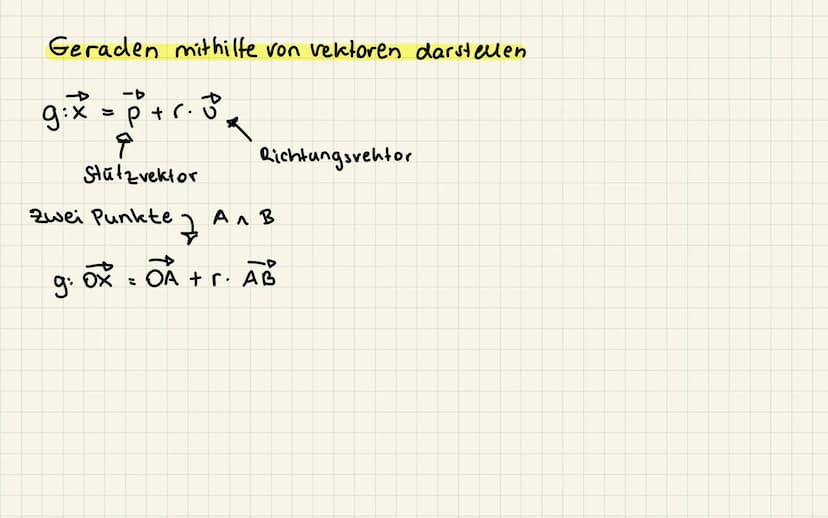 Geraden mithilfe von Vektoren darstellen
g: x⃗ = p⃗ + r · u⃗
Richtungsvektor
Stützvektor
Zwei Punkte A ∧ B
g: OX⃗ = OA⃗ + r · AB⃗